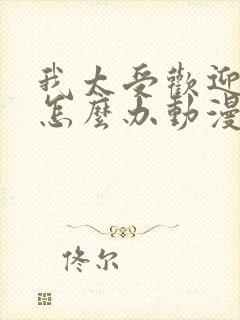 我太受歡迎
怎麼办動漫
佟尔